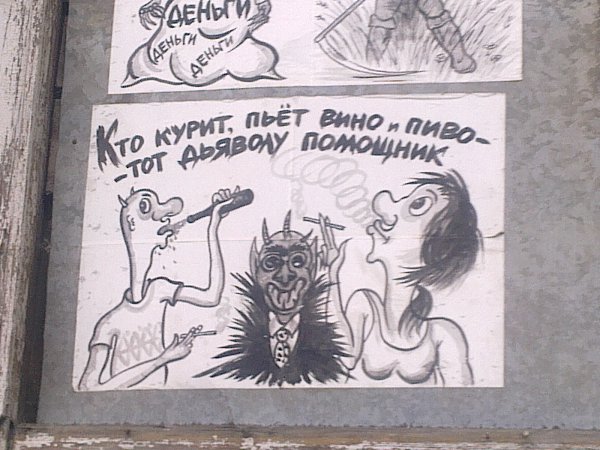 ДЕНЬГИ
ДЕНЬГИ
ДЕНЬГИ
КТО КУРИТ, ПЬЁТ ВИНО И ПИВО-
-ТОТ ДЬЯВОЛУ ПОМОЩНИК